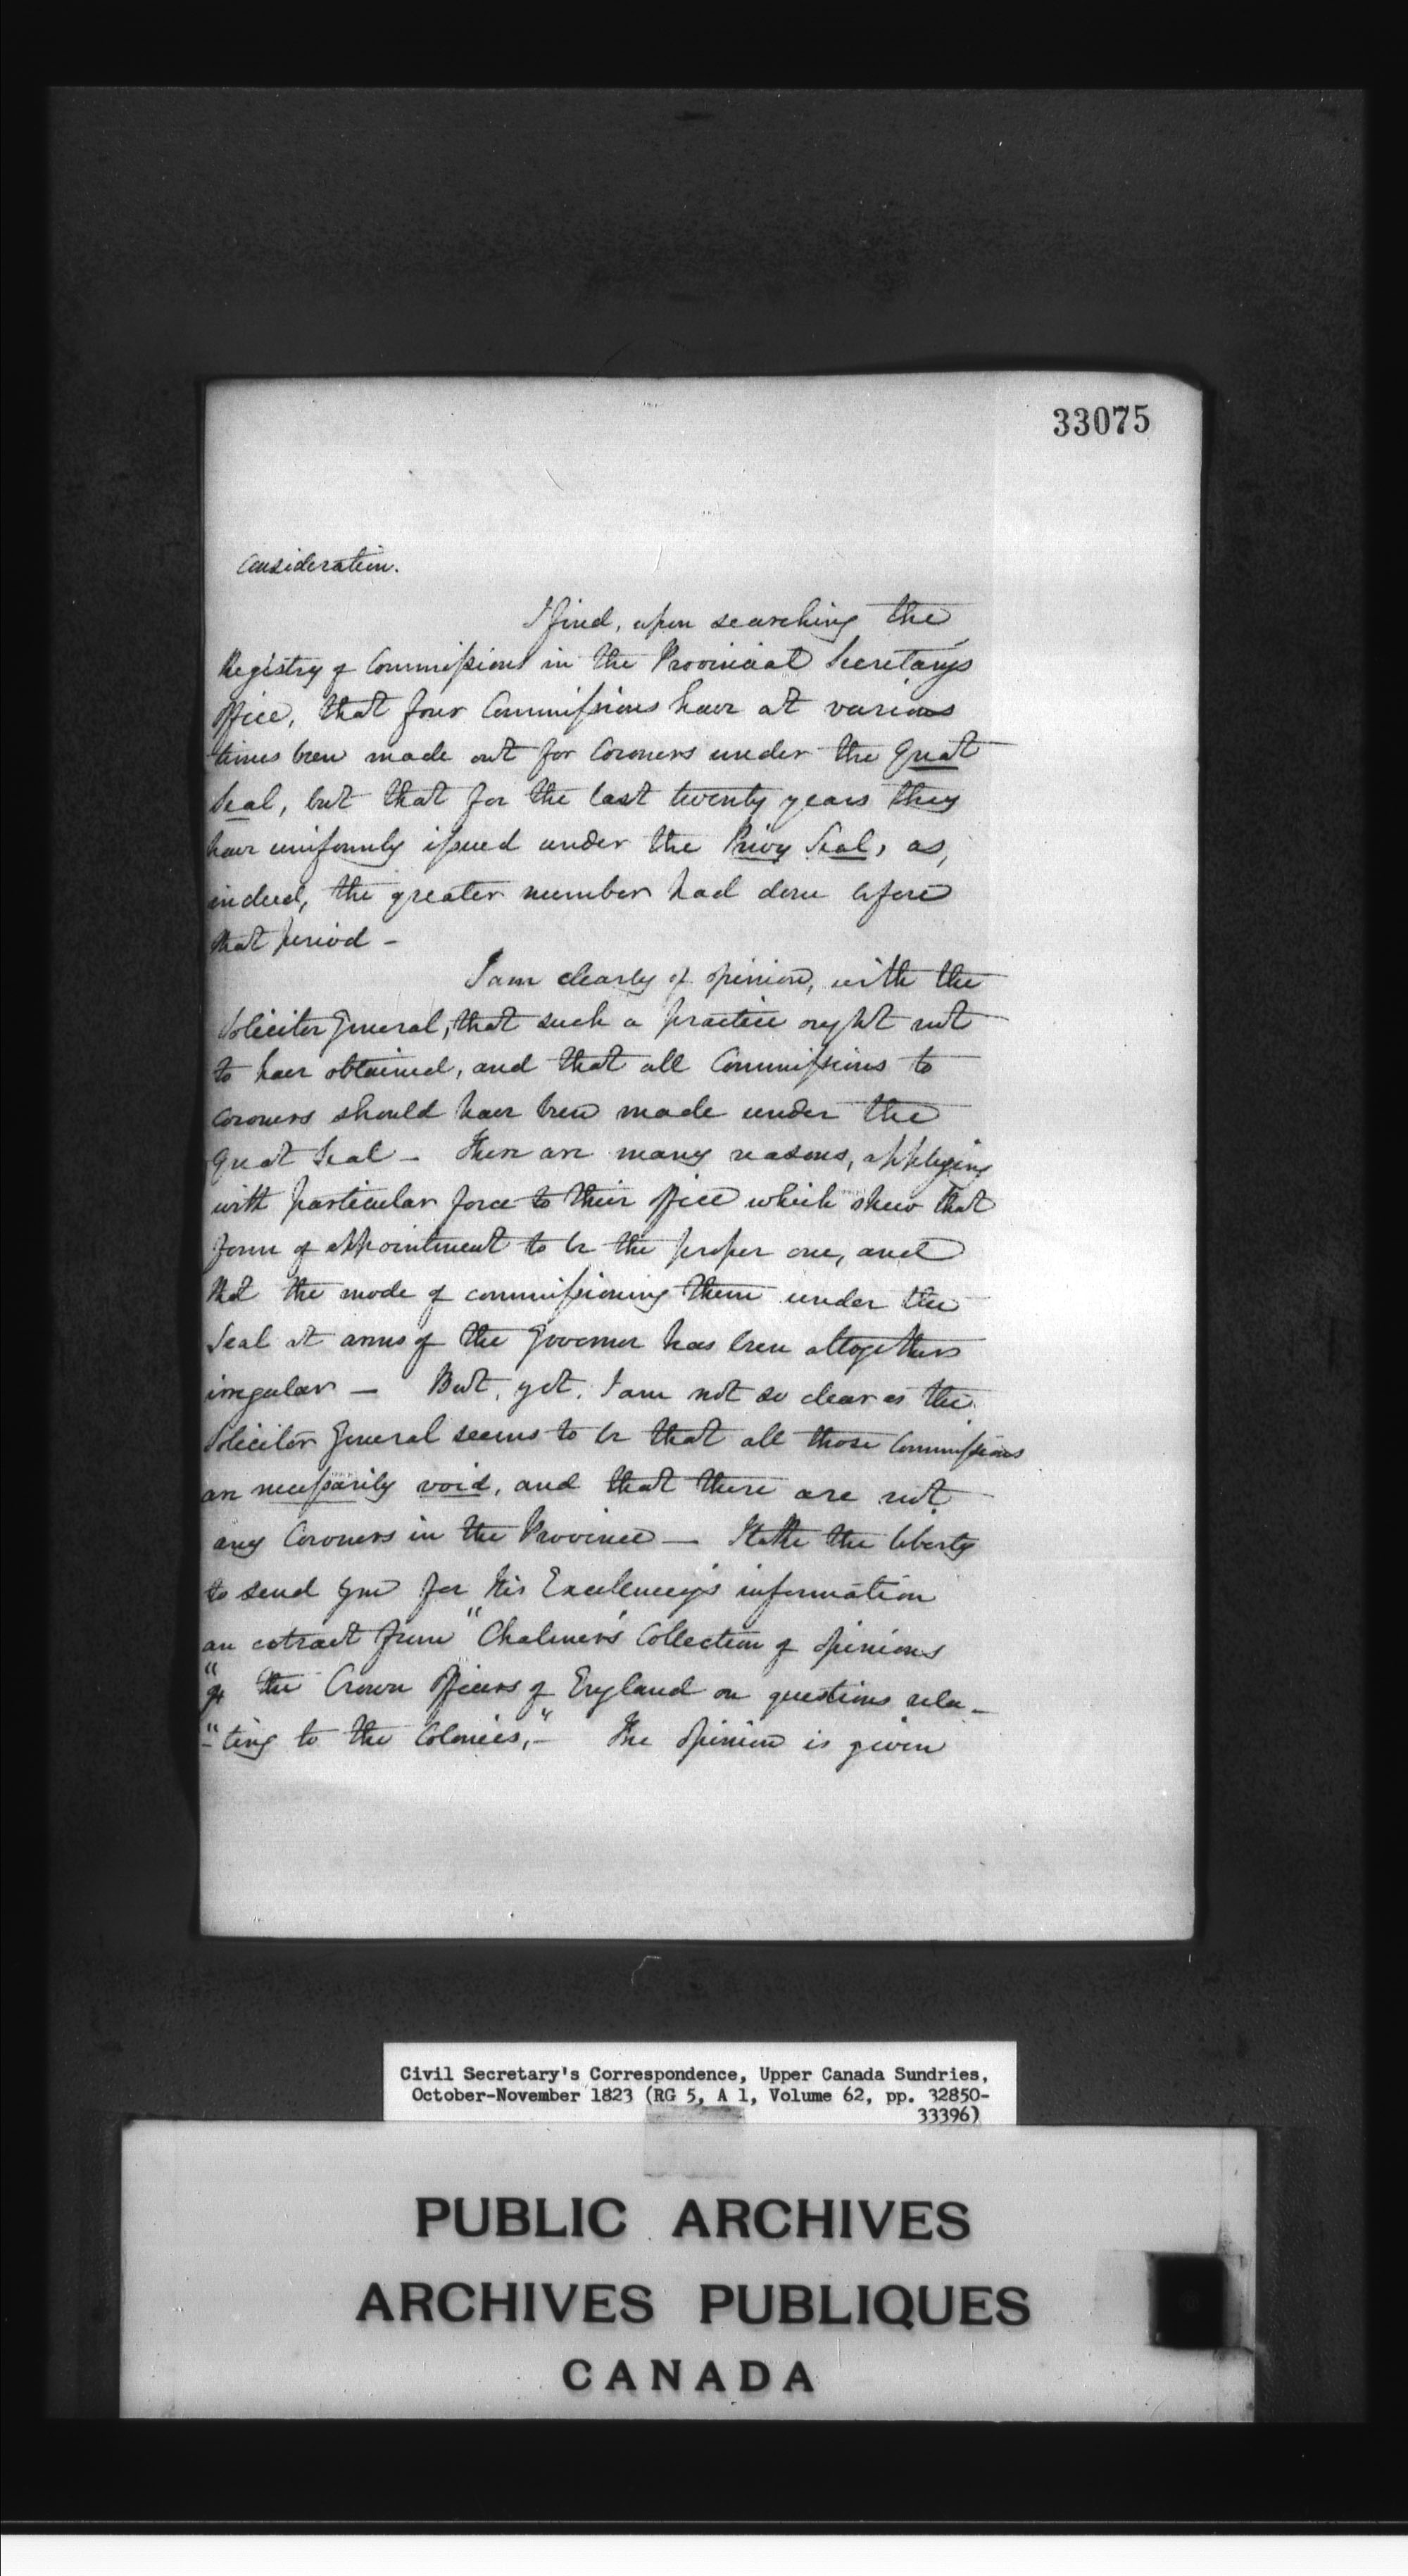 33075
consideration.
I find, upon searching the
Registry of Commissions in the Provincial Secretary's
office, that four Commissions have at various
times been made out for Coroners under the Great
Seal, but that for the last twenty years they
have uniformly issued under the Privy Seal, as,
indeed, the greater number had done before
that period -
I am clearly of opinion, with the
Solicitor General, that such a practice ought not
to have obtained, and that all Commissions to
Coroners should have been made under the
Great Seal - There are many reasons, applying
with particular force to their office which shew that
form of appointment to be the proper one, and
that the mode of commissioning them under the
Seal at arms of the Governor has been altogether
irregular - But, yet, I am not so clear as the
Solicitor General seems to be that all those Commissions
are necessarily void, and that there are not
any Coroners in the Province - I take the liberty
to send you for His Excellency's information
an extract from "Chalmers' Collection of opinions
"of the Crown Officers of England on questions rela-
"ting to the Colonies," - The opinion is given
Civil Secretary's Correspondence, Upper Canada Sundries,
October-November 1823 (RG 5, A 1, Volume 62, pp. 32850-
33396)
PUBLIC ARCHIVES
ARCHIVES PUBLIQUES
CANADA